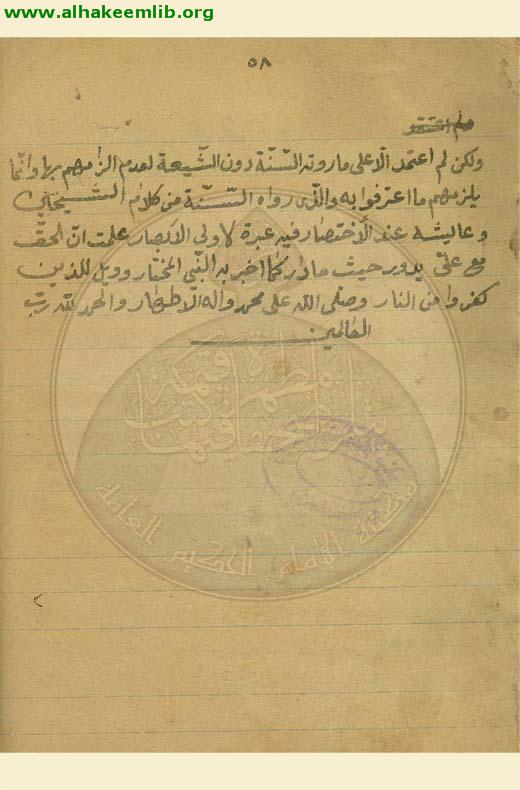 www.alhakeemlib.org
٥٨
ولكن لم اعتمد الّا على ما روته السّنّة دون الشّيعة لعدم الزامهم بها وانّما
يلزمهم ما اعترفوا به والذى رواه السّنّة من كلام الشيخين
وعايشه عند الاختصار فيه عبرة لاولى الابصار علمت انّ الحقّ
مع علىّ يدور حيث ما دار كما اخبر به النّبى المختار وويل للذين
كفروا من النار وصلى الله على محمد واله الاطهار والحمد لله ربّ
العالمين
مكتبة الإمام الحكيم العامة